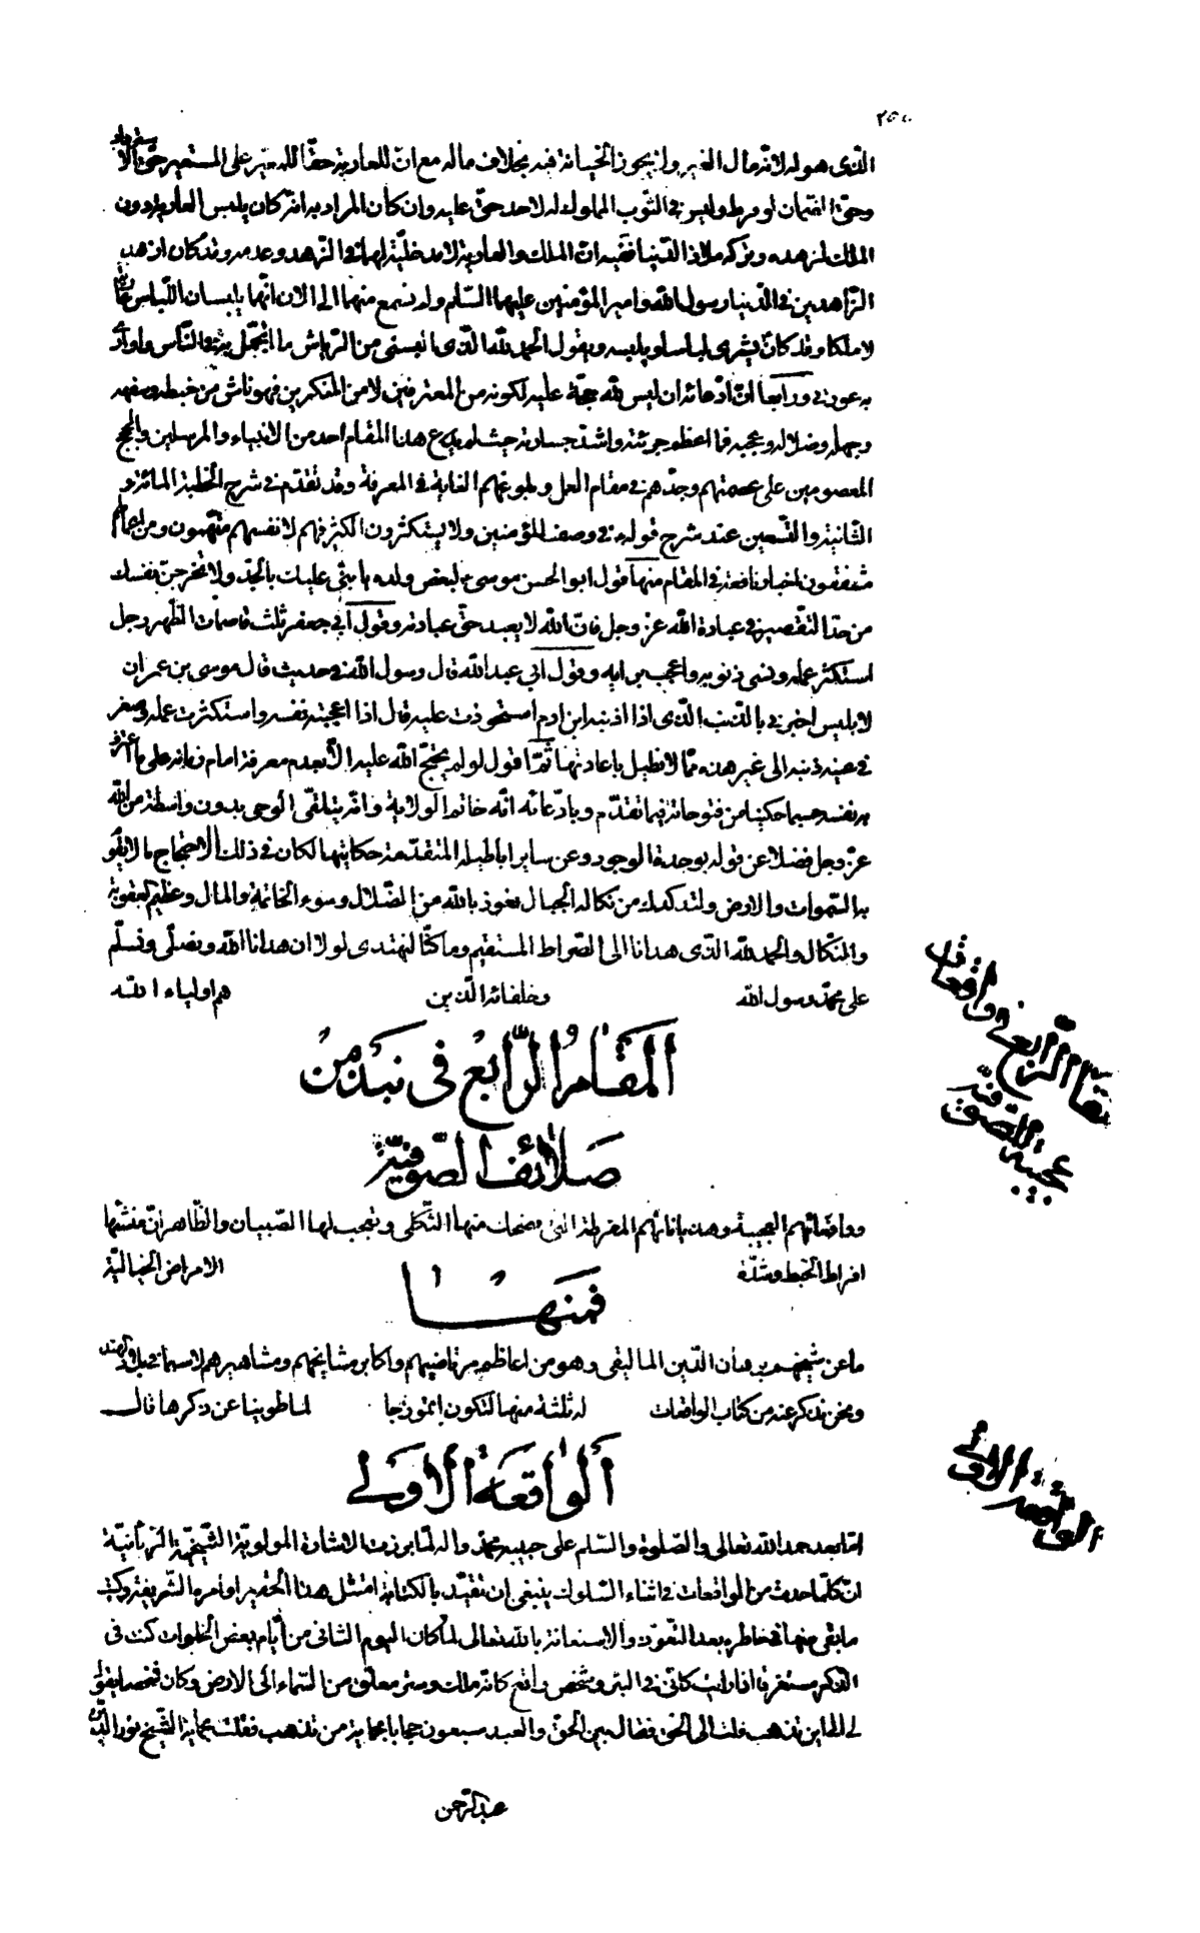 الّذى هو له لانّه مال الغير وانّ يجوز الخيانة فيه بخلاف ماله مع انّ للعارية حقّا للمعير على المستعير حقّ الاسترداد
وحقّ الضمان لو فرط وليس فى الثوب المملوك له لاحد حقّ عليه وان كان المراد به انّه كان يلبس العارية دون
الملك لزهده وتركه ملاذ الدّنيا ففيه انّ الملك والعارية لا مدخليّة لهما فى الزّهد وعدمه وقد كان ازهد
الزّاهدين فى الدّنيا رسول اللّه وامير المؤمنين عليهما السّلام ولم نسمع منهما الى الان انّهما يلبسان اللّباس عارية
لا ملكا وقد كان يشترى لباسا ويلبسه ويقول الحمد للّه الّذى البسنى من الرّياش ما اتجمّل به فى النّاس واوارى
به عورتى ورابعا انّ ادّعائه ان ليس للّه حجّة عليه لكونه من المعترفين لا من المنكرين فهو ناش من خبطه وسفهه
وجهله وضلاله وعجبه فما اعظم جرئته واشدّ جسارته حيث لم يدّع هذا المقام احد من الانبياء والمرسلين والحجج
المعصومين على عصمتهم وجدّهم فى مقام العمل وبلوغهم الغاية فى المعرفة وقد تقدّم فى شرح الخطبة المائة و
الثّانية والتّسعين عند شرح قوله فى وصف المؤمنين ولا يستكثرون الكثير فهم لانفسهم متّهمون ومن اعمالهم
مشفقون اخبار نافعة فى المقام منها قول ابو الحسن موسى لبعض ولده يا بنىّ عليك بالجدّ ولا تخرجنّ نفسك
من حدّ التّقصير فى عبادة اللّه عزّ وجل فانّ اللّه لا يعبد حقّ عبادته وقول ابى جعفر ثلث قاصمات الظّهر رجل
استكثر عمله ونسى ذنوبه واعجب برايه وقول ابى عبد اللّه قال رسول اللّه فى حديث قال موسى بن عمران
لابليس اخبرنى بالذّنب الّذى اذا اذنبه ابن ادم استحوذت عليه قال اذا اعجبته نفسه واستكثرت عمله وصغر
فى عينه ذنبه الى غير هذه ممّا لا نطيل باعادتها ثمّ اقول لو لم يحتجّ اللّه عليه الّا بعدم معرفة امام زمانه على ما اعترف
به نفسه حسبما حكيناه من فتوحاته فيما تقدّم وبادّعائه انّه خاتم الولاية وانّه يتلقّى الوحى بدون واسطة من اللّه
عزّ وجل فضلا عن قوله بوحدة الوجود وعن ساير اباطيله المتقدّمة حكايتها لكان فى ذلك الاحتجاج ما لا يقوم
به السّموات والارض ولتدكدك من نكاله الجبال نعوذ باللّه من الضّلال وسوء الخاتمة والمال وعظيم العقوبة
والنّكال والحمد للّه الّذى هدانا الى الصّراط المستقيم وما كنّا لنهتدى لولا ان هدانا اللّه ونصلّى ونسلّم
على محمّد رسول اللّه وخلفائه الّذين هم اولياء اللّه
المقام الرّابع فى نبذ من
المقام الرّابع فى واقعات
عجيبة للصوفيّة
صلائف الصّوفيّة
وواقعاتهم العجيبة وهذياناتهم المفرطة الّتى يضحك منها الثّكلى ويعجب لها الصّبيان والظّاهر انّ منشئها
افراط الخبط وشدّة الامراض الخياليّة
فمنها
ما عن شيخهم برهان الدّين المالبقى وهو من اعاظم مرتاضيهم واكابر مشايخهم ومشاهيرهم لا سيّما فى بلاد الهند
ونحن نذكر عنه من كتاب الواقعات له ثلثة منها لتكون انموذجا لما طوينا عن ذكرها قال
الواقعة الاولى
الواقعة الاولى
امّا بعد حمد اللّه تعالى والصّلوة والسّلم على حبيبه محمّد واله لمّا برزت الاشارة المولويّة الشّيخيّة الرّبانيّة
انّ كلّما حدث من الواقعات فى اثناء السّلوك ينبغى ان تقيّد بالكتابة امتثل هذا الحقير اوامره الشّريفة وكتب
ما بقى منها فى خاطره بعد التّعوّذ والاستعانة باللّه تعالى لمّا كان اليوم الثّانى من أيّام بعض الخلوات كنت فى
الذّكر مستغرقا اذا رايت كانّى فى البئر وشخص واقع كانّه ملك وستر معلّق من السّماء الى الارض وكان شخصا يقول
لى الى اين تذهب قلت الى الحق فقال بين الحق والعبد سبعون حجابا بحماية من تذهب فقلت بحماية الشّيخ نور الدّين
عبد الرّحمن